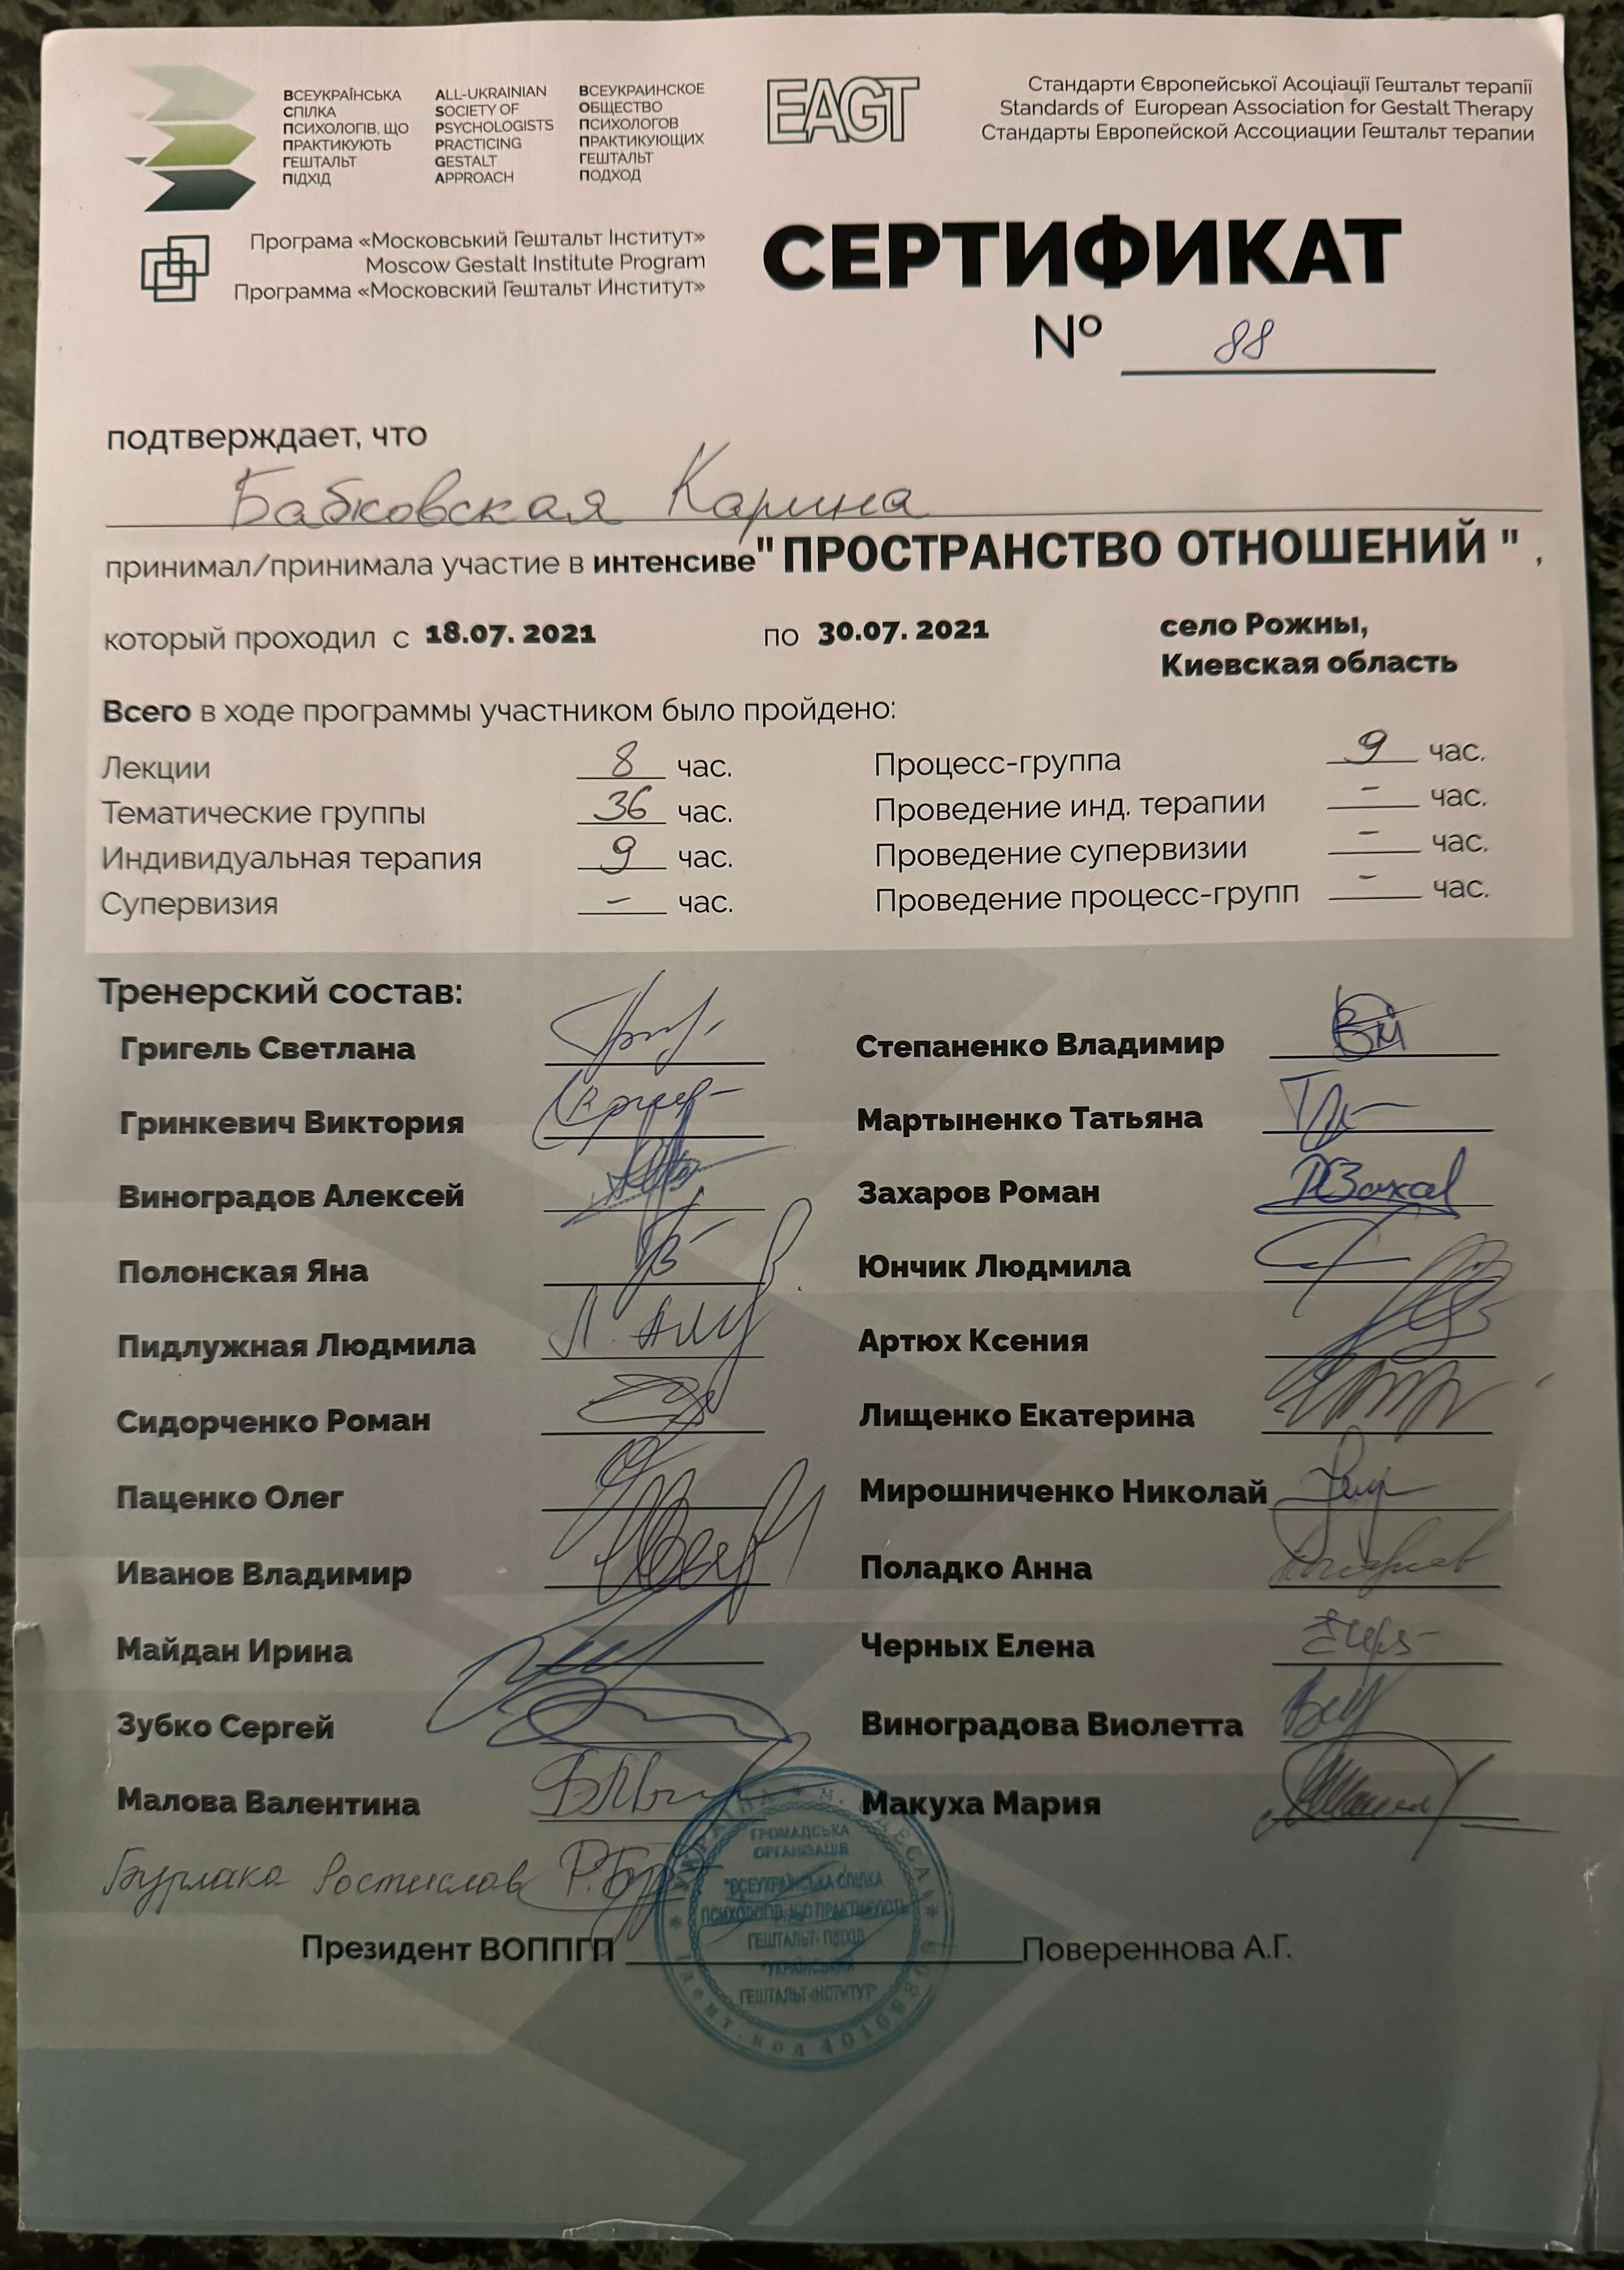 ВСЕУКРАЇНСЬКА
СПІЛКА
ПСИХОЛОГІВ, ЩО
ПРАКТИКУЮТЬ
ГЕШТАЛЬТ
ПІДХІД
ALL-UKRAINIAN
SOCIETY OF
PSYCHOLOGISTS
PRACTICING
GESTALT
APPROACH
ВСЕУКРАИНСКОЕ
ОБЩЕСТВО
ПСИХОЛОГОВ
ПРАКТИКУЮЩИХ
ГЕШТАЛЬТ
ПОДХОД
EAGT
Стандарти Європейської Асоціації Гештальт терапії
Standards of European Association for Gestalt Therapy
Стандарты Европейской Ассоциации Гештальт терапии
Програма «Московський Гештальт Інститут»
Moscow Gestalt Institute Program
Программа «Московский Гештальт Институт»
СЕРТИФИКАТ
№ 88
подтверждает, что
Бабковская Карина
принимал/принимала участие в интенсиве " ПРОСТРАНСТВО ОТНОШЕНИЙ " ,
который проходил с 18.07. 2021 по 30.07. 2021 село Рожны,
Киевская область
Всего в ходе программы участником было пройдено:
Лекции 8 час. Процесс-группа 9 час.
Тематические группы 36 час. Проведение инд. терапии - час.
Индивидуальная терапия 9 час. Проведение супервизии - час.
Супервизия - час. Проведение процесс-групп - час.
Тренерский состав:
Григель Светлана Степаненко Владимир
Гринкевич Виктория Мартыненко Татьяна
Виноградов Алексей Захаров Роман
Полонская Яна Юнчик Людмила
Пидлужная Людмила Артюх Ксения
Сидорченко Роман Лищенко Екатерина
Паценко Олег Мирошниченко Николай
Иванов Владимир Поладко Анна
Майдан Ирина Черных Елена
Зубко Сергей Виноградова Виолетта
Малова Валентина Макуха Мария
Бурлака Ростислав
Президент ВОППГП Повереннова А.Г.
УКРАЇНА * м. ОДЕСА
ГРОМАДСЬКА
ОРГАНІЗАЦІЯ
"ВСЕУКРАЇНСЬКА СПІЛКА
ПСИХОЛОГІВ, ЩО ПРАКТИКУЮТЬ
ГЕШТАЛЬТ- ПІДХІД
"УКРАЇНСЬКИЙ
ГЕШТАЛЬТ-ІНСТИТУТ"